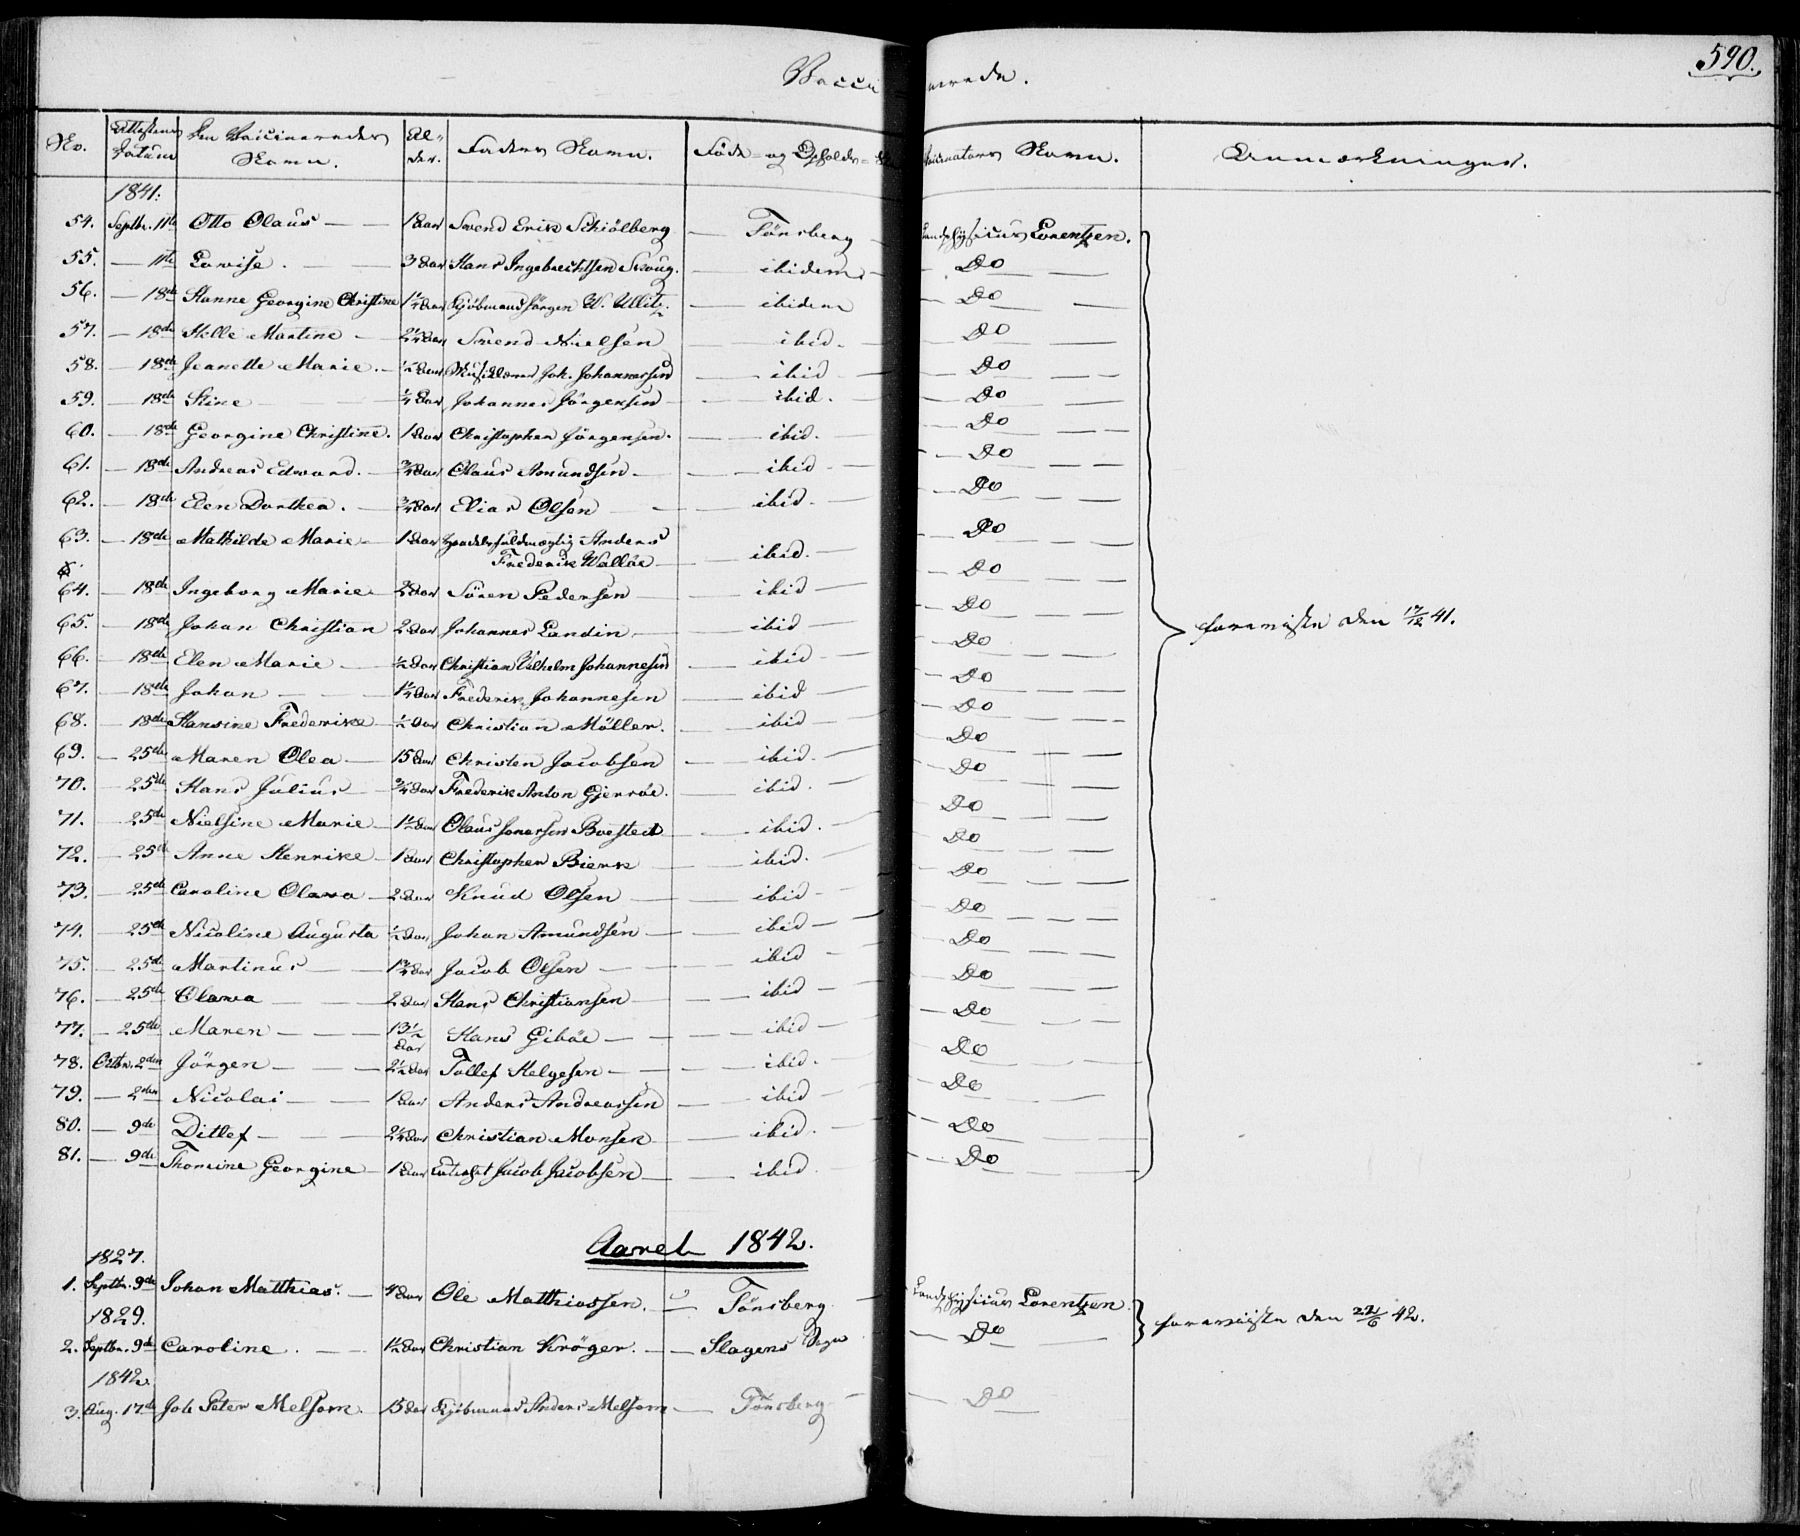 Vaccinerede.
590.
No. Attestens Datum Den Vaccineredes Navn. Alder. Faders Navn. Føde- og Opholds- Vaccinators Navn. Anmærkninger.
1841.
54. Septbr. 11te Otto Olaus — 1 Aar Svend Erik Schiölberg — Tönsberg — Landphysicus Lorentzen.
55. — 11te Lovise. — 3 Aar Hans Ingebrechtsen Skoug. — ibidem — Do
56. — 18de Hanne Georgine Christine 1¼ Aar Kjöbmand Jörgen W. Ullitz. — ibidem — Do
57. — 18de Helle Martine — 2¼ Aar Svend Nielsen — ibid. — Do
58. — 18de Jeanette Marie. — ½ Aar Musiklærer Joh. Johannessen — ibid — Do
59. — 18de Stine — ¼ Aar Johannes Jörgensen — ibid. — Do
60. — 18de Georgine Christine. 1 Aar Christopher Jörgensen. — ibid. — Do
61. — 18de Andreas Edvard. — ¾ Aar Olaus Amundsen — ibid — Do
62. — 18de Elen Dorthea. — ¾ Aar Elias Olsen — ibid. — Do
63. — 18de Mathilde Marie — 1 Aar Handelsfuldmægtig Anders
Frederik Walløe — ibid. — Do
64. — 18de Ingeborg Marie — 2 Aar Sören Pedersen — ibid — Do
65. — 18de Johan Christian 2 Aar Johannes Landin — ibid — Do
foreviste den 17/12 41.
66. — 18de Elen Marie — ½ Aar Christian Vilhelm Johannesen — ibid — Do
67. — 18de Johan — 1¼ Aar Frederik Johannesen — ibid — Do
68. — 18de Hansine Frederike — ½ Aar Christian Möller. — ibid — Do
69. — 25de Maren Olea — 15 Aar Christen Jacobsen — ibid. — Do
70. — 25de Hans Julius — ¾ Aar Frederik Anton Gjersöe. — ibid. — Do
71. — 25de Nielsine Marie — 1½ Aar Olaus Boested — ibid. — Do
72. — 25de Anne Henrike — 1 Aar Christopher Bierk — ibid. — Do
73. — 25de Caroline Olava — 2 Aar Knud Olsen — ibid — Do
74. — 25de Nicoline Augusta ½ Aar Johan Amundsen — ibid — Do
75. — 25de Martinus — 1¾ Aar Jacob Olsen — ibid — Do
76. — 25de Olava — 2 Aar Hans Christiansen — ibid — Do
77. — 25de Maren — 13½ Aar Hans Giböe — ibid — Do
78. Octbr. 2den Jörgen — 2½ Aar Tollef Helgesen — ibid. — Do
79. — 2den Nicolai — 1 Aar Anders Andreassen — ibid — Do
80. — 9de Ditlef — 2¼ Aar Christian Monsen — ibid. — Do
81. — 9de Thomine Georgine — 1 Aar Jacob Jacobsen — ibid — Do
Aaret 1842.
1827.
1. Septbr. 9de Johan Matthias. — 4 Aar Ole Matthiassen. — Tönsberg. — Landphysicus Lorentzen.
1829.
foreviste den 22/6 42.
2. Septbr. 9de Caroline. — 1½ Aar Christian Kröger. — Slagens Sogn — Do
1842.
3. Aug. 17de Joh Peter Melsom. 15 Aar Kjöbmand Anders Melsom — Tönsberg — Do